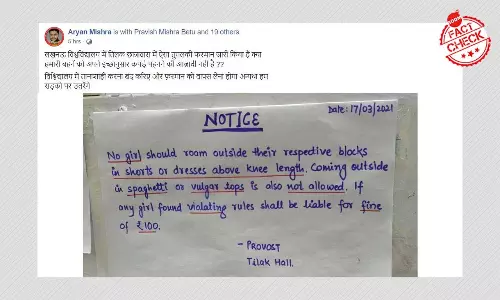 Aryan Mishra is with Pravish Mishra Betu and 19 others.
6 hrs
लखनऊ विश्वविद्यालय में तिलक छात्रावास में ऐसा तुगलकी फरमान जारी किया है क्या
हमारी बहनों को अपने इच्छानुसार कपड़े पहनने की आज़ादी नहीं है ??
विश्विद्यालय में तानाशाही करना बंद करिए और फ़रमान को वापस लेना होगा अन्यथा हम
सड़को पर उतरेंगे
BOOM
FACT
CHECK
Date: 17/03/2021
NOTICE
No girl should room outside their respective blocks
in shorts or dresses above knee length. Coming outside
in spaghetti or vulgar tops is also not allowed. If
any girl found violating rules shall be liable for fine
of ₹100.
- PROVOST
Tilak Hall.